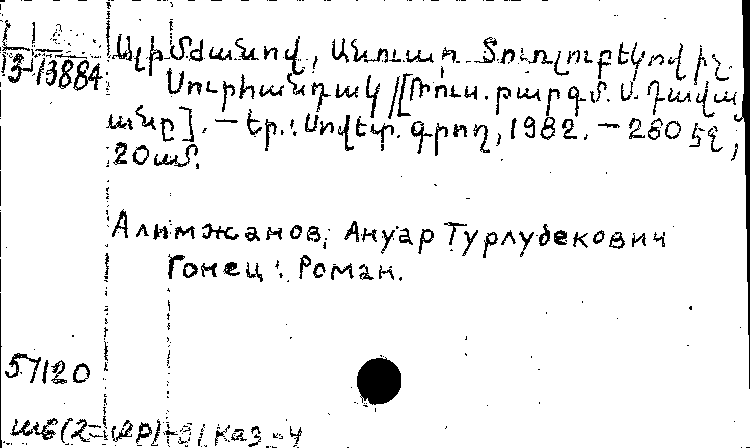 3-13884
Ալիմժանով, Անուար Տուռլուբեկովիչ
Սուրհանդակ /[Ռուս. թարգմ. Ս. Ղավալ
յանը]. — Եր.: Սովետ. գրող, 1982. — 280 էջ,
20 սմ.
Алимжанов, Ануар Турлубекович
Гонец : Роман.
57120